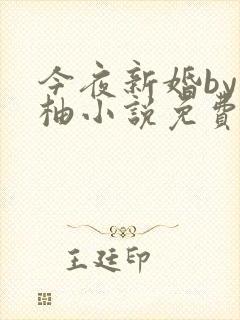 今夜新婚by
柚小說免費
王廷印